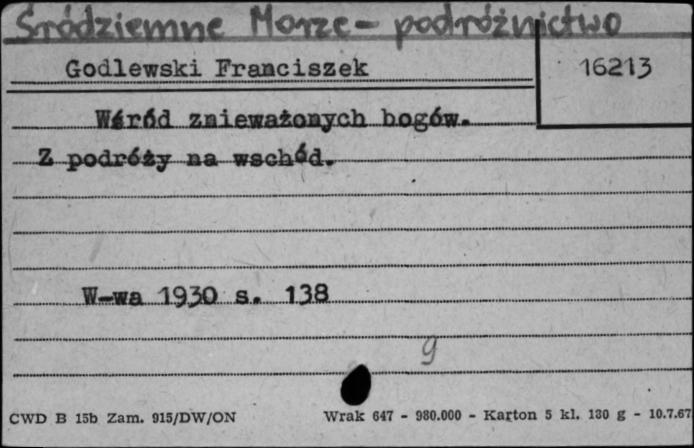 Śródziemne Morze - podróżnictwo
Godlewski Franciszek
16213
Wśród znieważonych bogów.
Z podróży na wschód.
W-wa 1930 s. 138
9
CWD B 15b Zam. 915/DW/ON
Wrak 647 - 980.000 - Karton 5 kl. 180 g - 10.7.67